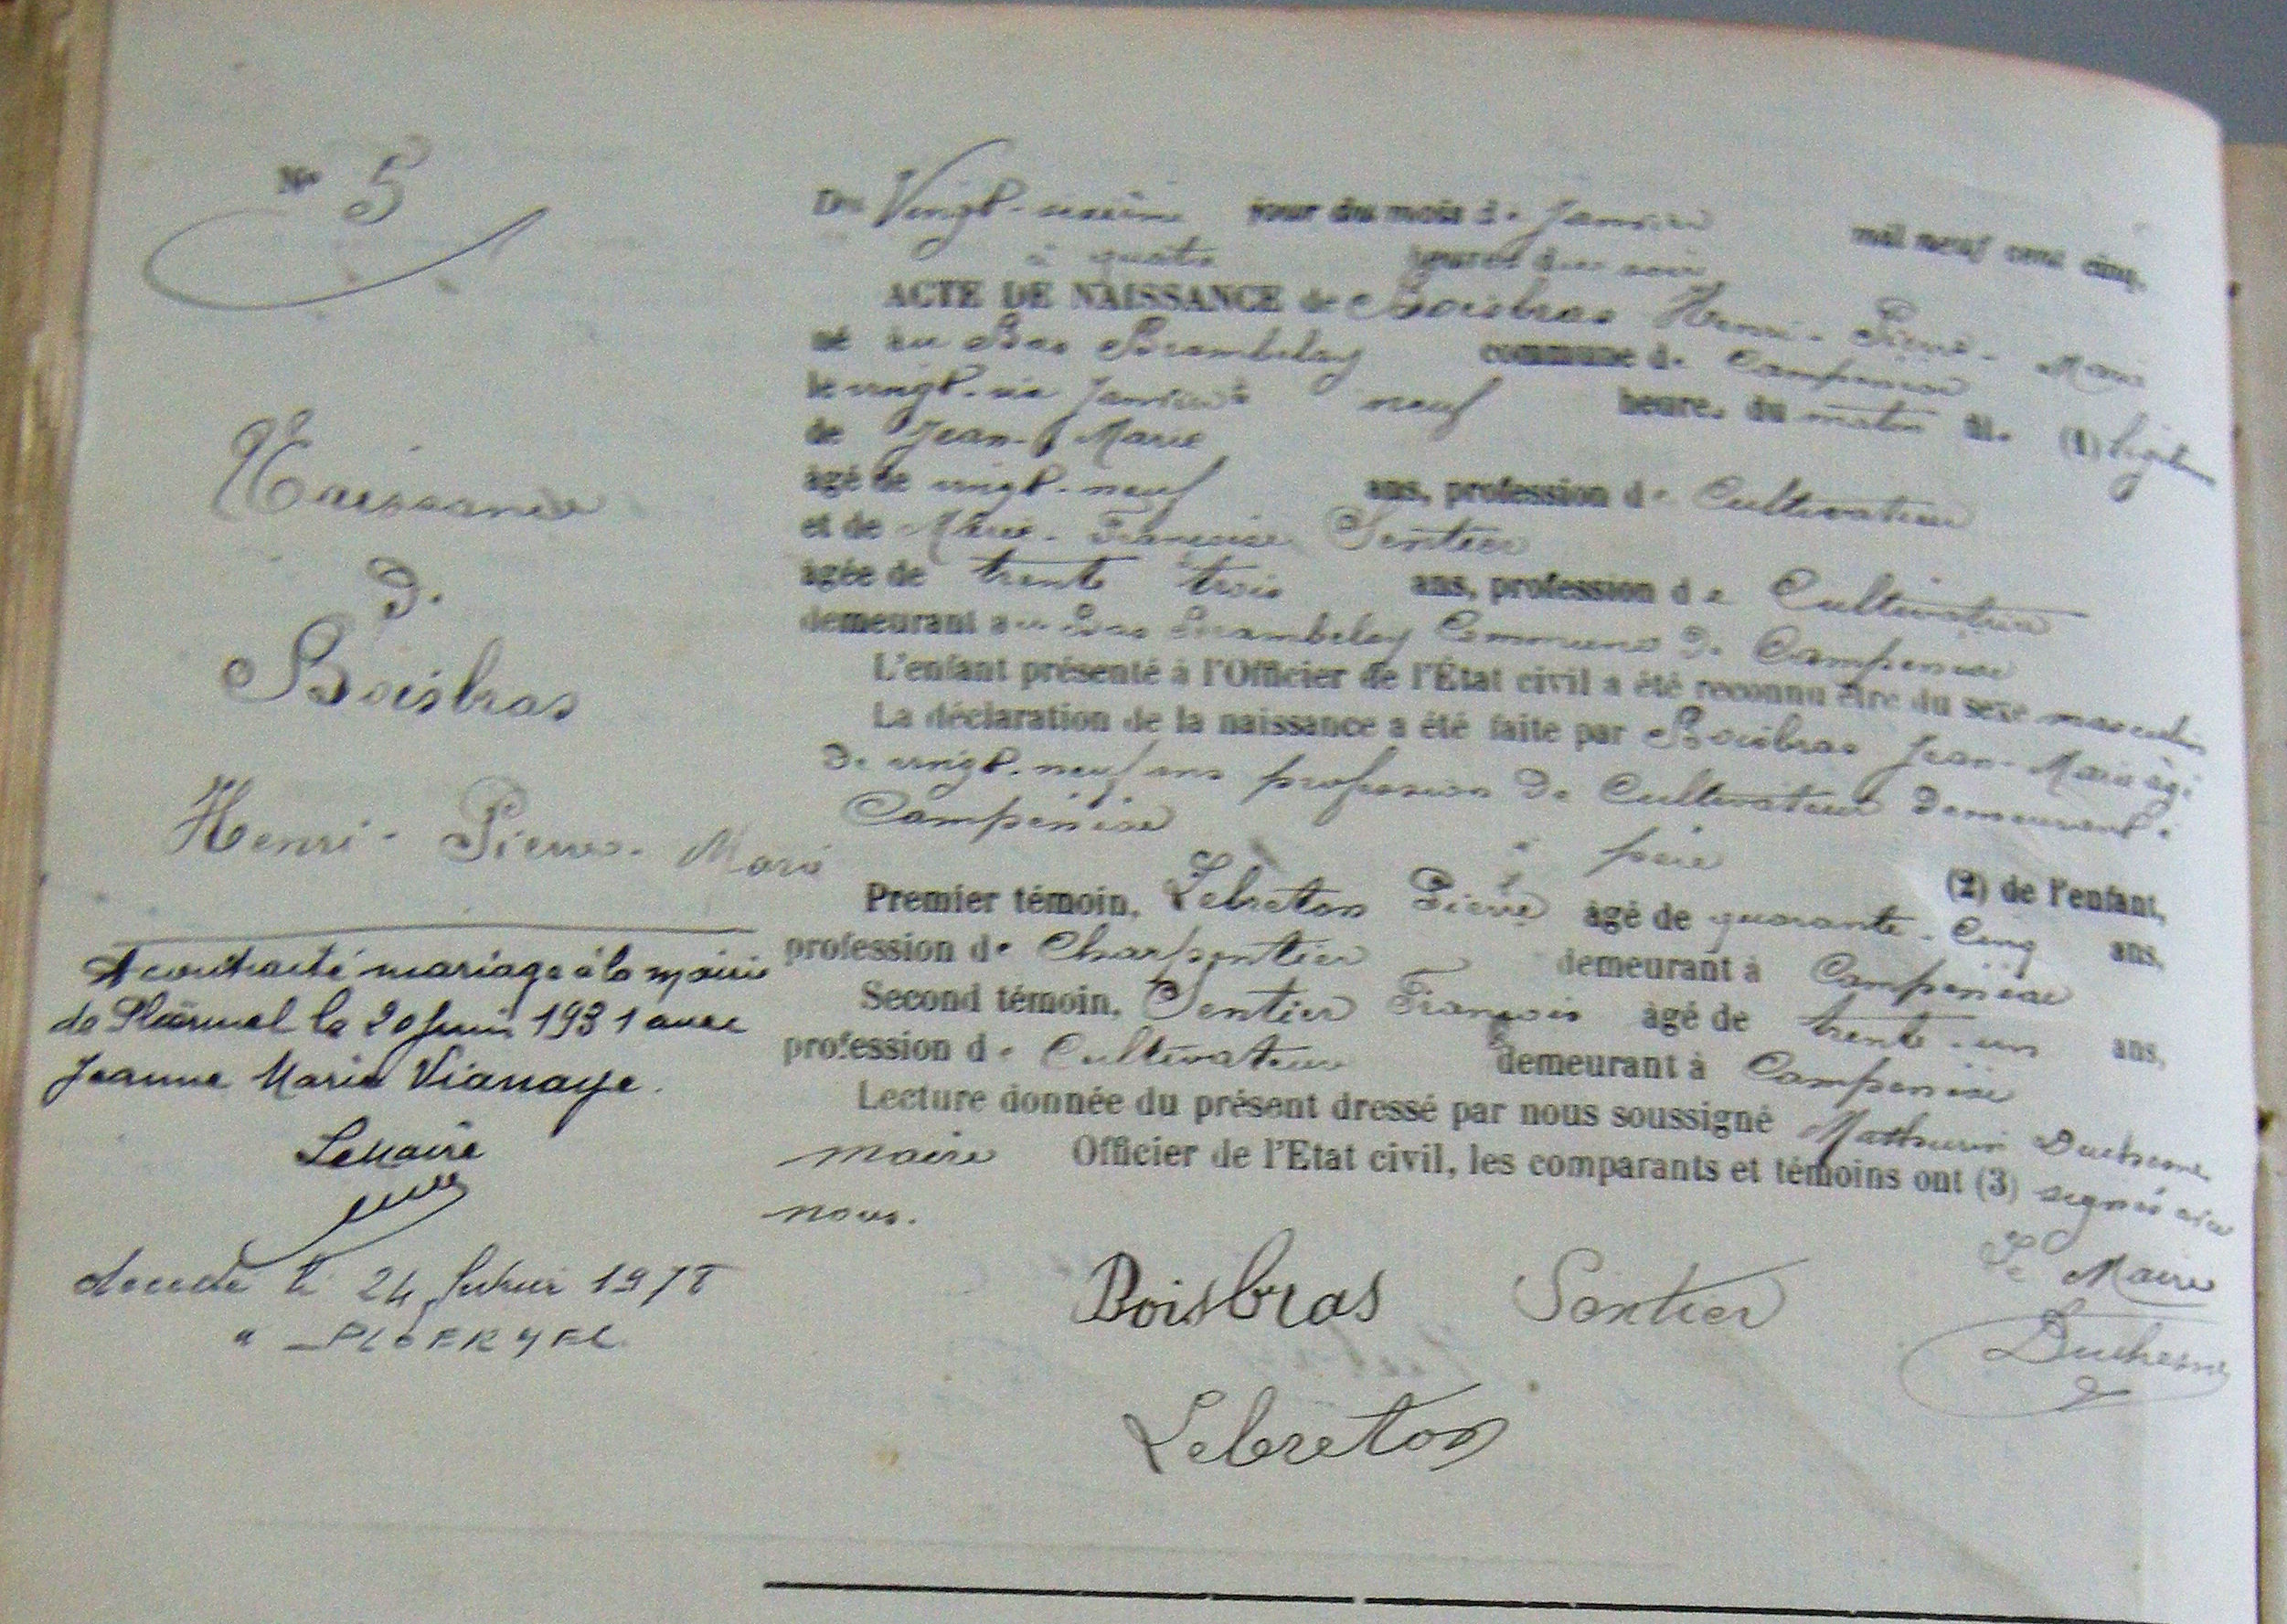 N° 5
Naissance
de
Boisbras
Henri - Pierre - Marie
A contracté mariage à la mairie
de Ploërmel le 20 Juin 1931 avec
Jeanne Marie Vianaye.
Le Maire
décédé le 24 février 197
à PLOERMEL
Du Vingt-sixième jour du mois de Janvier mil neuf cent cinq,
à quatre heures du soir
ACTE DE NAISSANCE de Boisbras Henri - Pierre - Marie
né au Bas Brambelay commune de Campénéac
le vingt-six Janvier à neuf heures du matin fils (1) légitime
de Jean-Marie
âgé de vingt-neuf ans, profession de Cultivateur
et de Marie-Françoise Sentier
âgée de trente trois ans, profession de Cultivatrice
demeurant au Bas Brambelay Commune de Campénéac
L'enfant présenté à l'Officier de l'État civil a été reconnu être du sexe masculin
La déclaration de la naissance a été faite par Boisbras Jean-Marie âgé
de vingt-neuf ans profession de Cultivateur demeurant à
Campénéac père (2) de l'enfant,
Premier témoin, Lebreton Pierre âgé de quarante-cinq ans,
profession de Charpentier demeurant à Campénéac
Second témoin, Sentier François âgé de trente-un ans,
profession de Cultivateur demeurant à Campénéac
Lecture donnée du présent dressé par nous soussigné Mathurin Duchesne
maire Officier de l'Etat civil, les comparants et témoins ont (3) signés avec
nous.
Le Maire
Boisbras Sentier Duchesne
Lebreton